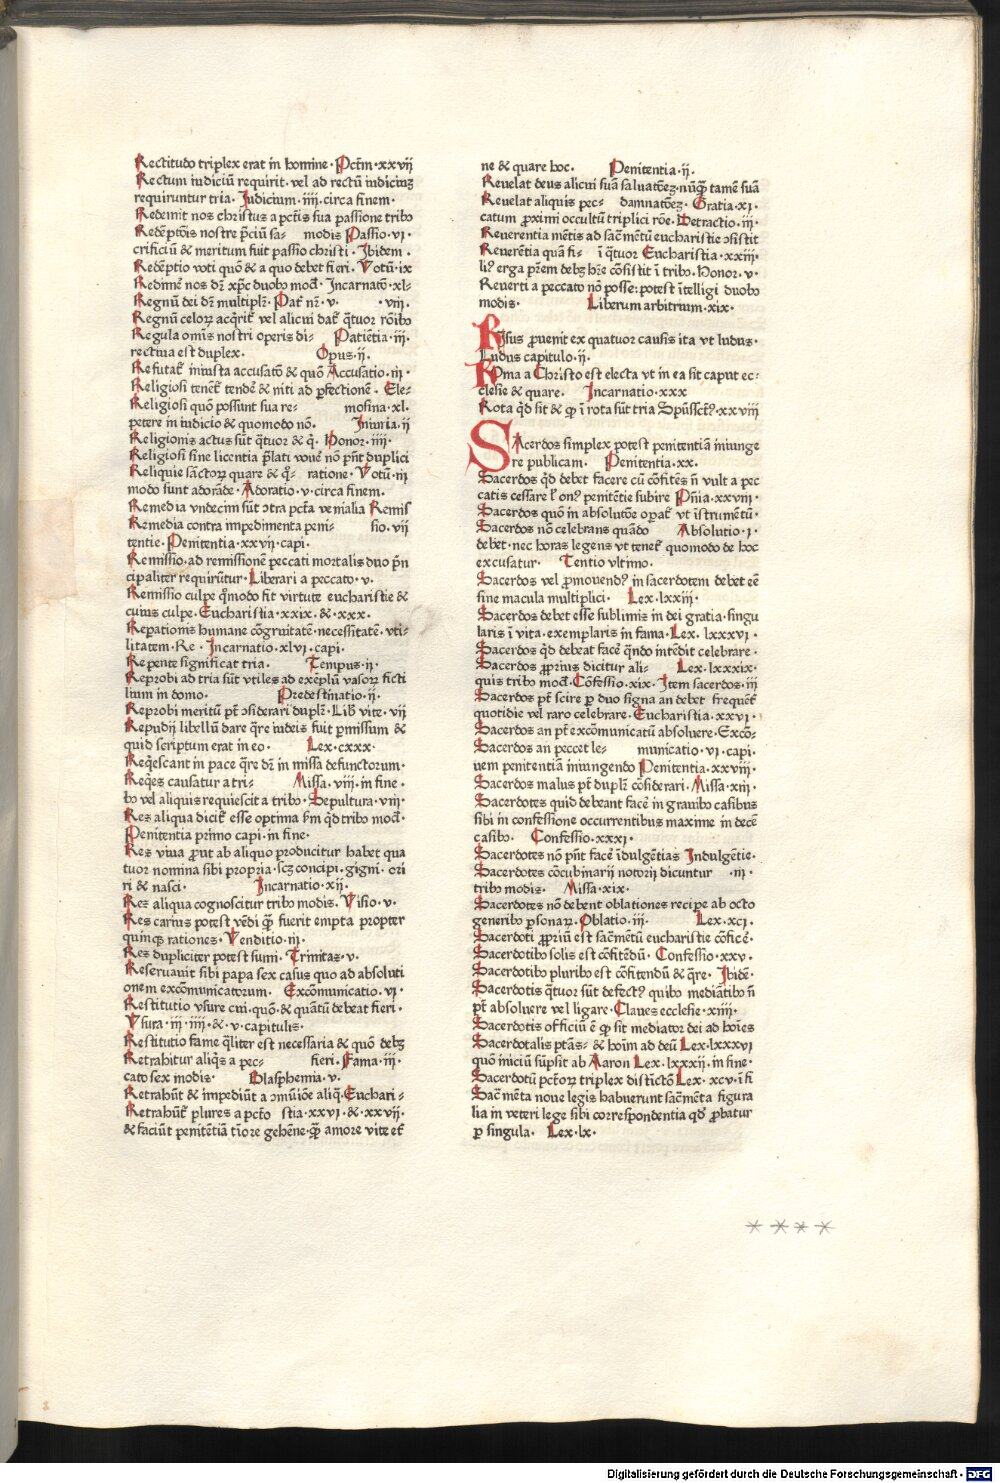 Rectitudo triplex erat in homine · Pctm̄ · xxvij
Rectum iudiciū requirit · vel ad rectū iudiciuꝫ
requiruntur tria · Iudicium · iiij · circa finem ·
Redemit nos christus a pctīs sua passione tribꝰ
Redēptōis nostre p̄ciū sa- modis Passio · vi ·
crificiū & meritum fuit passio christi · Ibidem ·
Redēptio voti quō & a quo debet fieri · Votū · ix
Redimē nos dr̄ xp̄c duobꝰ modꝭ · Incarnatō · xl-
Regnū dei dr̄ multiplr̄ · Pat̄ nr̄ · v · · viij ·
Regnū celoꝝ acq̄rit᷑ vel alicui dat᷑ q̄tuor rōibꝰ
Regula om̄is nostri operis di- Patiētia · iij ·
rectiua est duplex · Opus · ij ·
Refutat᷑ iniusta accusatō & quō Accusatio · iij ·
Religiosi tenēt᷑ tendē & niti ad p̄fectionē · Ele-
Religiosi quō possunt sua re- mosina · xl ·
petere in iudicio & quomodo nō · Iniuria · ij
Religionis actus sūt q̄tuor & q̄ · Honor · iiij ·
Religiosi sine licentia p̄lati vouē nō pn̄t duplici
Reliquie sāctoꝝ quare & q̄- ratione · Votū · iij
modo sunt adorāde · Adoratio · v · circa finem ·
Remedia vndecim sūt ɔtra pctā venialia Remis
Remedia contra impedimenta peni- sio · vij
tentie · Penitentia · xxvij · capi ·
Remissio · ad remissionē peccati mortalis duo p̄n
cipaliter requirūtur · Liberari a peccato · v ·
Remissio culpe q̄modo fit virtute eucharistie &
cuius culpe · Eucharistia · xxix · & · xxx ·
Rep̄ationis humane cōgruitatē · necessitatē · vti-
litatem · Re · Incarnatio · xlvi · capi ·
Repente significat tria · Tempus · ij ·
Reprobi ad tria sūt vtiles ad exēplū vasoꝝ ficti
lium in domo · Predestinatio · ij ·
Reprobi meritū pt̄ ɔsiderari duplr̄ · Lib̄ vite · vij
Repudij libellū dare q̄re iudeis fuit p̄missum &
quid scriptum erat in eo · Lex · cxxx ·
Req̄escant in pace q̄re dr̄ in missa defunctorum ·
Req̄es causatur a tri- Missa · viij · in fine ·
bꝰ vel aliquis requiescit a tribꝰ · Sepultura · vij
Res aliqua dicit᷑ esse optima scd̄m q̄d tribꝰ modꝭ ·
Penitentia primo capi · in fine ·
Res viua prout ab aliquo producitur habet qua
tuor nomina sibi propria · scꝫ concipi · gigni · ori
ri & nasci · Incarnatio · xij ·
Res aliqua cognoscitur tribꝰ modis · Visio · v ·
Res carius potest vēdi q̄ fuerit empta propter
quinqꝫ rationes · Venditio · iij ·
Res dupliciter potest sumi · Trinitas · v ·
Reseruauit sibi papa sex casus quo ad absoluti
onem excōmunicatorum · Excōmunicatio · vi ·
Restitutio vsure cui · quō · & quātū debeat fieri ·
Vsura · iij · iiij · & · v · capitulis ·
Restitutio fame q̄liter est necessaria & quō debꝫ
Retrahitur aliq̄s a pec- fieri · Fama · iij ·
cato sex modis · Blasphemia · v ·
Retrahūt & impediūt a ɔmūiōe aliq̄ · Euchari-
Retrahūt᷑ plures a pctō stia · xxvi · & · xxvij ·
& faciūt penitētiā tīore gehēne · q̄ amore vite et᷑
ne & quare hoc · Penitentia · ij ·
Reuelat deus alicui suā saluatōeꝫ · nūq̄ tamē suā
Reuelat aliquis pec- damnatōeꝫ · Gratia · xi ·
catum proximi occultū triplici rōe · Detractio · iij ·
Reuerentia mētis ad sac̄mētū eucharistie ɔsistit
Reuerētia quā fi- ī q̄tuor Eucharistia · xxiij ·
liꝰ erga pr̄em debꝫ hr̄e cōsistit ī tribꝰ · Honor · v ·
Reuerti a peccato nō posse : potest ītelligi duobꝰ
modis · Liberum arbitrium · xix ·
RIsus prouenit ex quatuor causis ita vt ludus ·
Ludus capitulo · ij ·
ROma a Christo est electa vt in ea sit caput ec-
clesie & quare · Incarnatio · xxx
Rota q̄d sit & q̄ ī rota sūt tria Spūssctꝰ · xxviij
SAcerdos simplex potest penitentiā iniunge
re publicam · Penitentia · xx ·
Sacerdos q̄d debet facere cū cōfitēs n̄ vult a pec
catis cessare l᷑ onꝰ penitētie subire Pn̄ia · xxviij ·
Sacerdos quō in absolutōe oꝑat᷑ vt īstrumētū ·
Sacerdos nō celebrans quādo Absolutio · i ·
debet · nec horas legens vt tenet᷑ quomodo de hoc
excusatur · Tentio vltimo ·
Sacerdos vel p̄mouendꝰ in sacerdotem debet eē
sine macula multiplici · Lex · lxxiij ·
Sacerdos debet esse sublimis in dei gratia · singu
laris ī vita · exemplaris in fama · Lex · lxxxvi ·
Sacerdos q̄d debeat facē q̄ndo intēdit celebrare ·
Sacerdos proprius dicitur ali- Lex · lxxxix ·
quis tribꝰ modꝭ · Cōfessio · xix · Item sacerdos · iij
Sacerdos pt̄ scire p duo signa an debet frequēt᷑
quotidie vel raro celebrare · Eucharistia · xxvi ·
Sacerdos an pt̄ excōmunicatū absoluere · Excō-
Sacerdos an peccet le- municatio · vi · capi ·
uem penitentiā iniungendo Penitentia · xxviij ·
Sacerdos malus pt̄ duplr̄ cōsiderari · Missa · xiij ·
Sacerdotes quid debeant facē in grauibꝰ casibus
sibi in confessione occurrentibus maxime in decē
casibꝰ · Confessio · xxxi ·
Sacerdotes nō pn̄t facē īdulgētias Indulgētie ·
Sacerdotes cōcubinarij notorij dicuntur · iij ·
tribꝰ modis · Missa · xix ·
Sacerdotes nō debent oblationes recipe ab octo
generibꝰ p̄sonaꝝ · Oblatio · iij · Lex · xci ·
Sacerdoti propriū est sac̄mētū eucharistie cōficē ·
Sacerdotibꝰ solis est cōfitēdū · Confessio · xxv ·
Sacerdotibꝰ pluribꝰ est cōfitendū & q̄re · Ibidē ·
Sacerdotis q̄tuor sūt defectꝰ quibꝰ mediātibꝰ n̄
pt̄ absoluere vel ligare · Claues ecclesie · xiiij ·
Sacerdotis officiū ē q̄ sit mediator dei ad hoīes
Sacerdotalis ptās- & hoīm ad deū Lex · lxxxvi
quō iniciū sūpsit ab Aaron Lex · lxxxij · in fine ·
Sacerdotū pctōꝝ triplex distīctō Lex · xcv · ī fi
Sac̄mēta noue legis habuerunt sac̄mēta figura
lia in veteri lege sibi correspondentia qd̄ probatur
p singula · Lex · lx ·
Digitalisierung gefördert durch die Deutsche Forschungsgemeinschaft · DFG